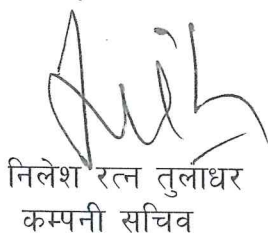 निलेश रत्न तुलाधर
कम्पनी सचिव